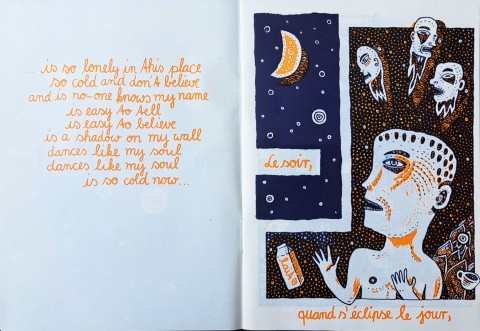 ...is so lonely in this place
so cold and don't believe
and is no-one knows my name
is easy to tell
is easy to believe
is a shadow on my wall
dances like my soul
dances like my soul
is so cold now...
Le soir,
lait
quand s'éclipse le jour,